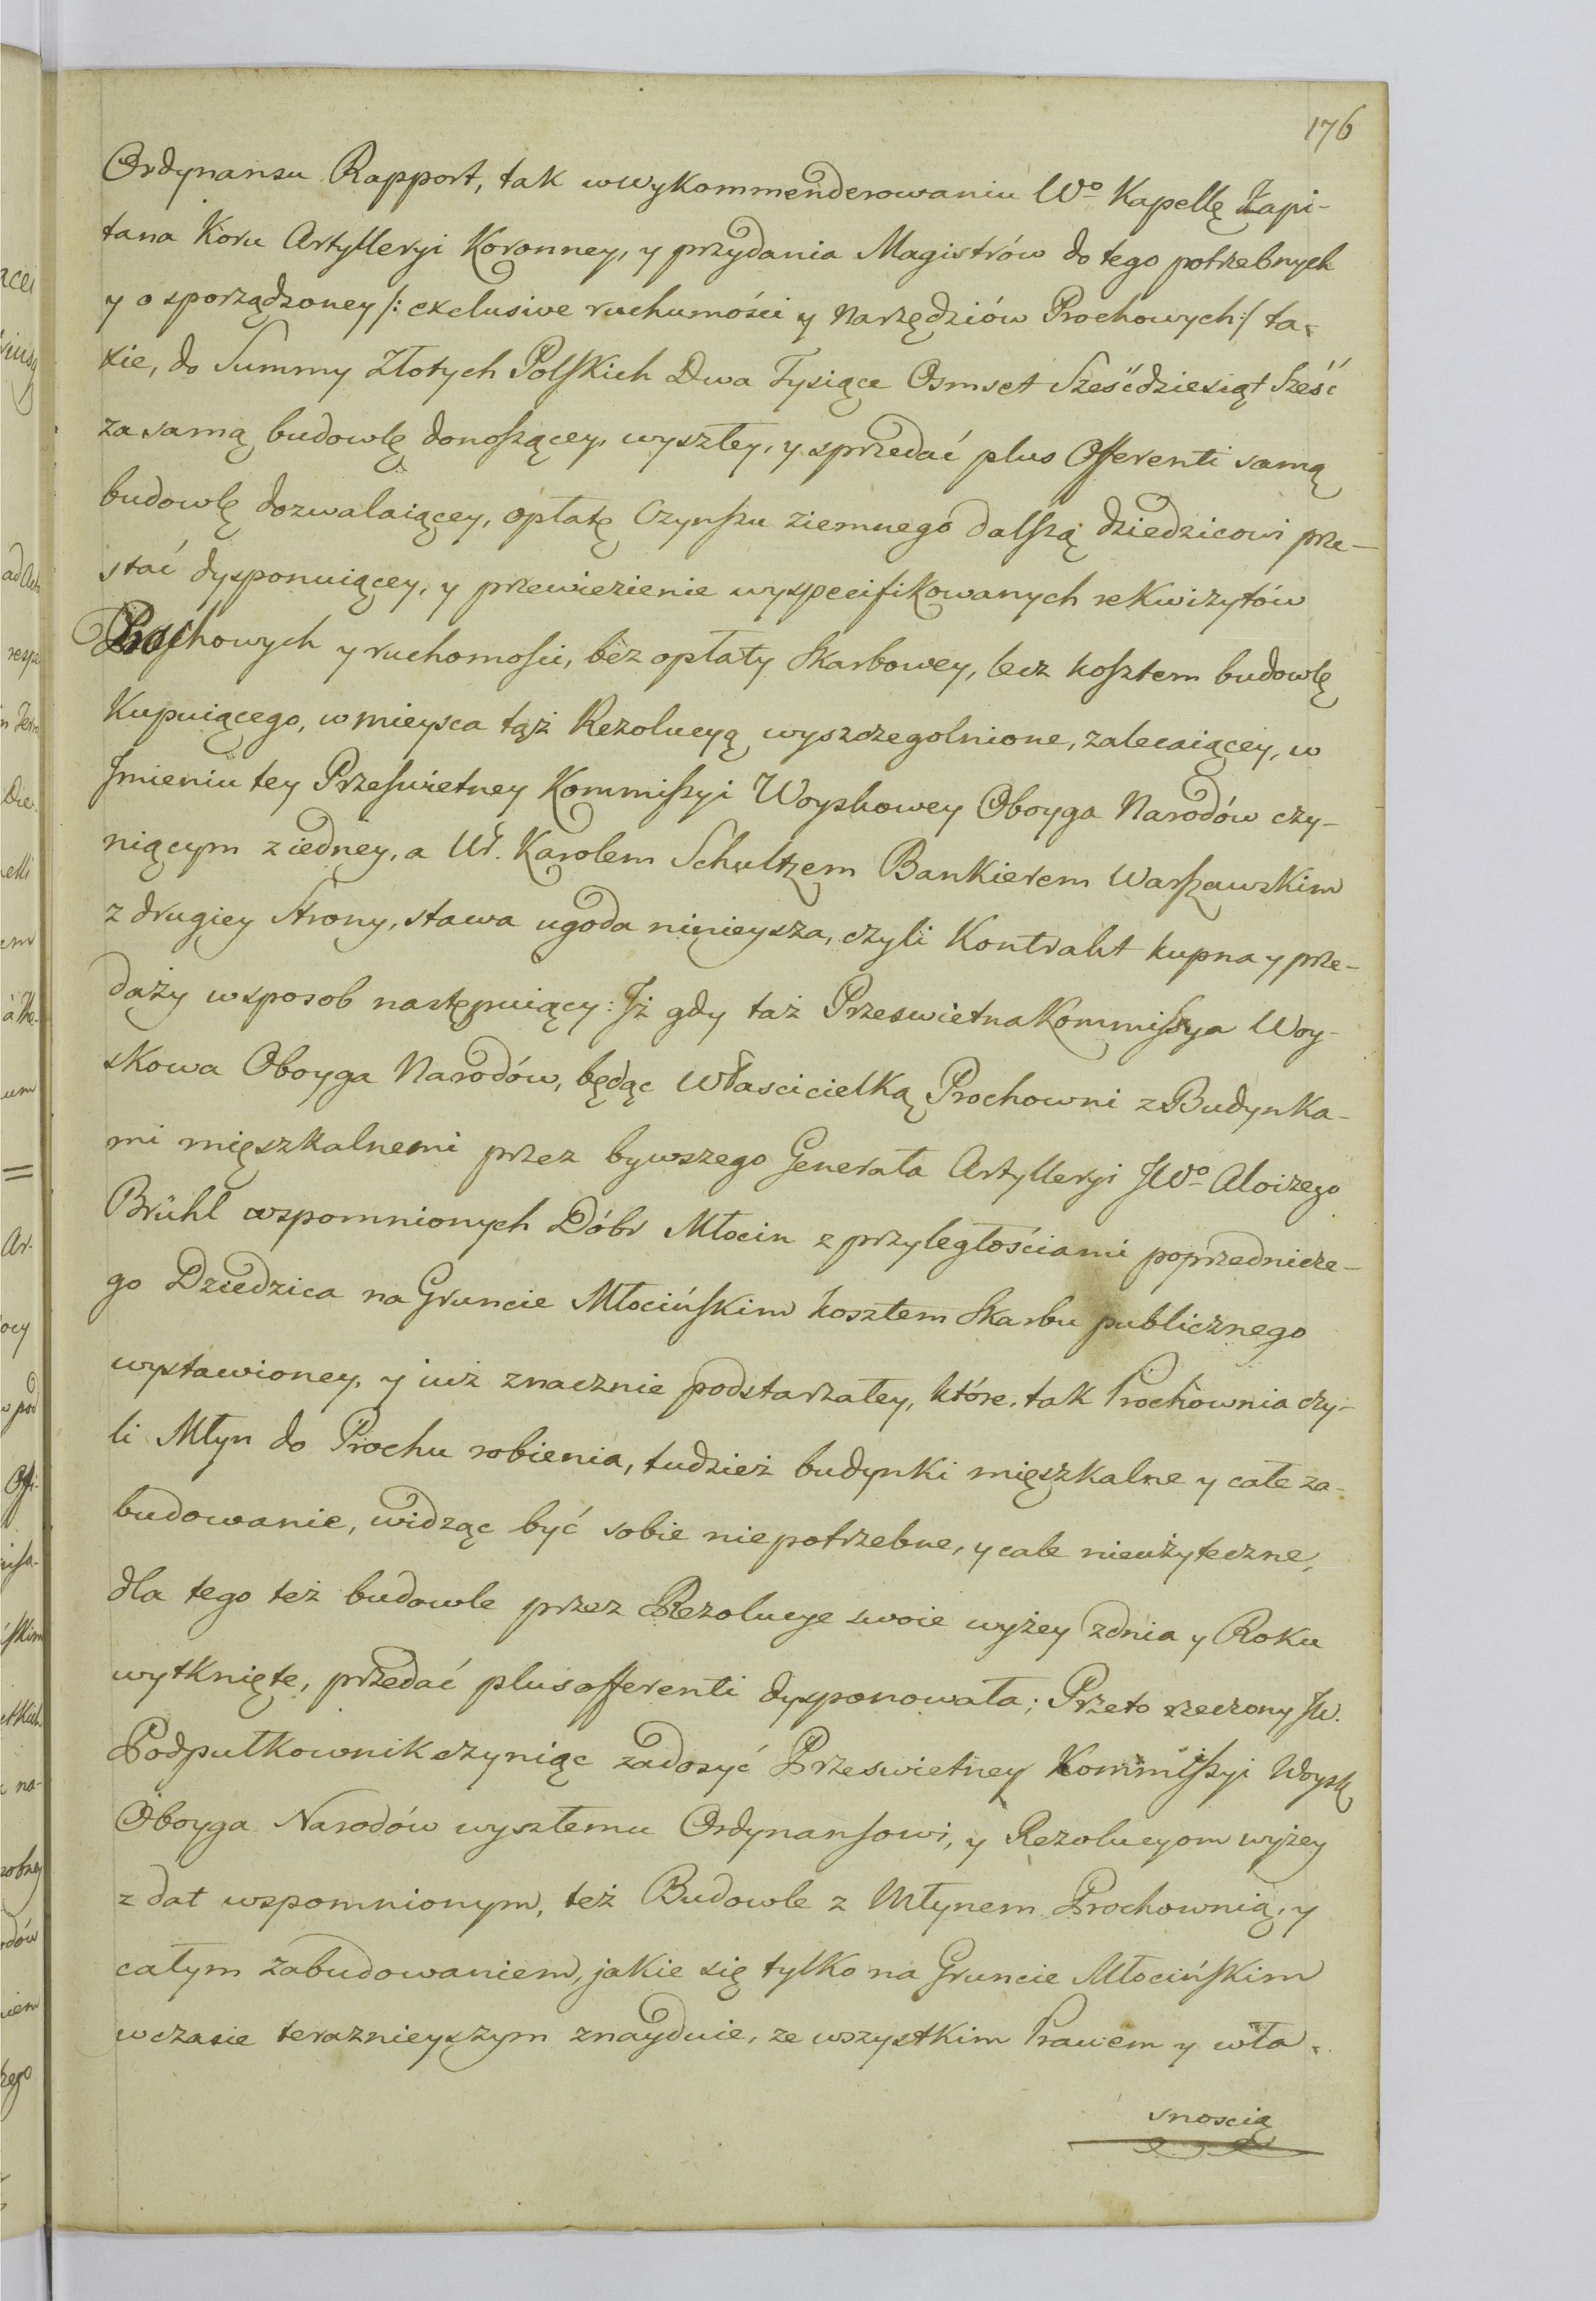 176
Ordynansu Rapport, tak w wykommenderowaniu Wo Kapellę Kapi-
tana Koru Artylleryi Koronney, y przydania Magistrów do tego potrzebnych
y o sporządzoney /: exclusive ruchumości y Narzędziów Prochowych :/ ta-
xie, do Summy Złotych Polskich Dwa Tysiące Osmset Sześćdziesiąt Sześć
za samą budowlę donoszącey, wyszłey, y sprzedać plus Offerenti samą
budowlę dozwalaiącey, opłatę Czynszu ziemnego dalszą dziedzicowi prze-
stać dysponuiącey, y przewiezienie wyspecifikowanych rekwizytów
Prochowych y ruchomości, bez opłaty Skarbowey, lecz kosztem budowlę
Kupuiącego, w mieysca tąż Rezolucyą wyszczegolnione, zalecaiącey, w
Jmieniu tey Prześwietney Kommissyi Woyskowey Oboyga Narodów czy-
niącym z iedney, a Uł. Karolem Schultzem Bankierem Warszawskim
z drugiey Strony, stawa ugoda ninieysza, czyli Kontrakt kupna y prze-
daży w sposob następuiący: Jż gdy taż Przeswietna Kommissya Woy-
skowa Oboyga Narodów, będąc Włascicielką Prochowni z Budynka-
mi mięszkalnemi przez bywszego Generała Artylleryi JWo Aloizego
Brühl wspomnionych Dóbr Młocin z przyległościami poprzednicze-
go Dziedzica na Gruncie Młocińskim kosztem Skarbu publicznego
wystawioney, y iuż znacznie podstarzałey, które, tak Prochownia czy-
li Młyn do Prochu robienia, tudzież budynki mięszkalne y całe za-
budowanie, widząc być sobie niepotrzebne, y cale nieużyteczne,
dla tego też budowle przez Rezolucye swoie wyżey z dnia y Roku
wytknięte, przedać plus offerenti dysponowała; Przeto rzeczony JW.
Podpułkownik czyniąc zadosyć Przeswietney Kommissyi Woysk
Oboyga Narodów wyszłemu Ordynansowi, y Rezolucyom wyżey
z dat wspomnionym, też Budowle z Młynem Prochownią, y
całym zabudowaniem, jakie się tylko na Gruncie Młocińskim
w czasie teraznieyszym znayduie, ze wszystkim Prawem y wła-
snoscią